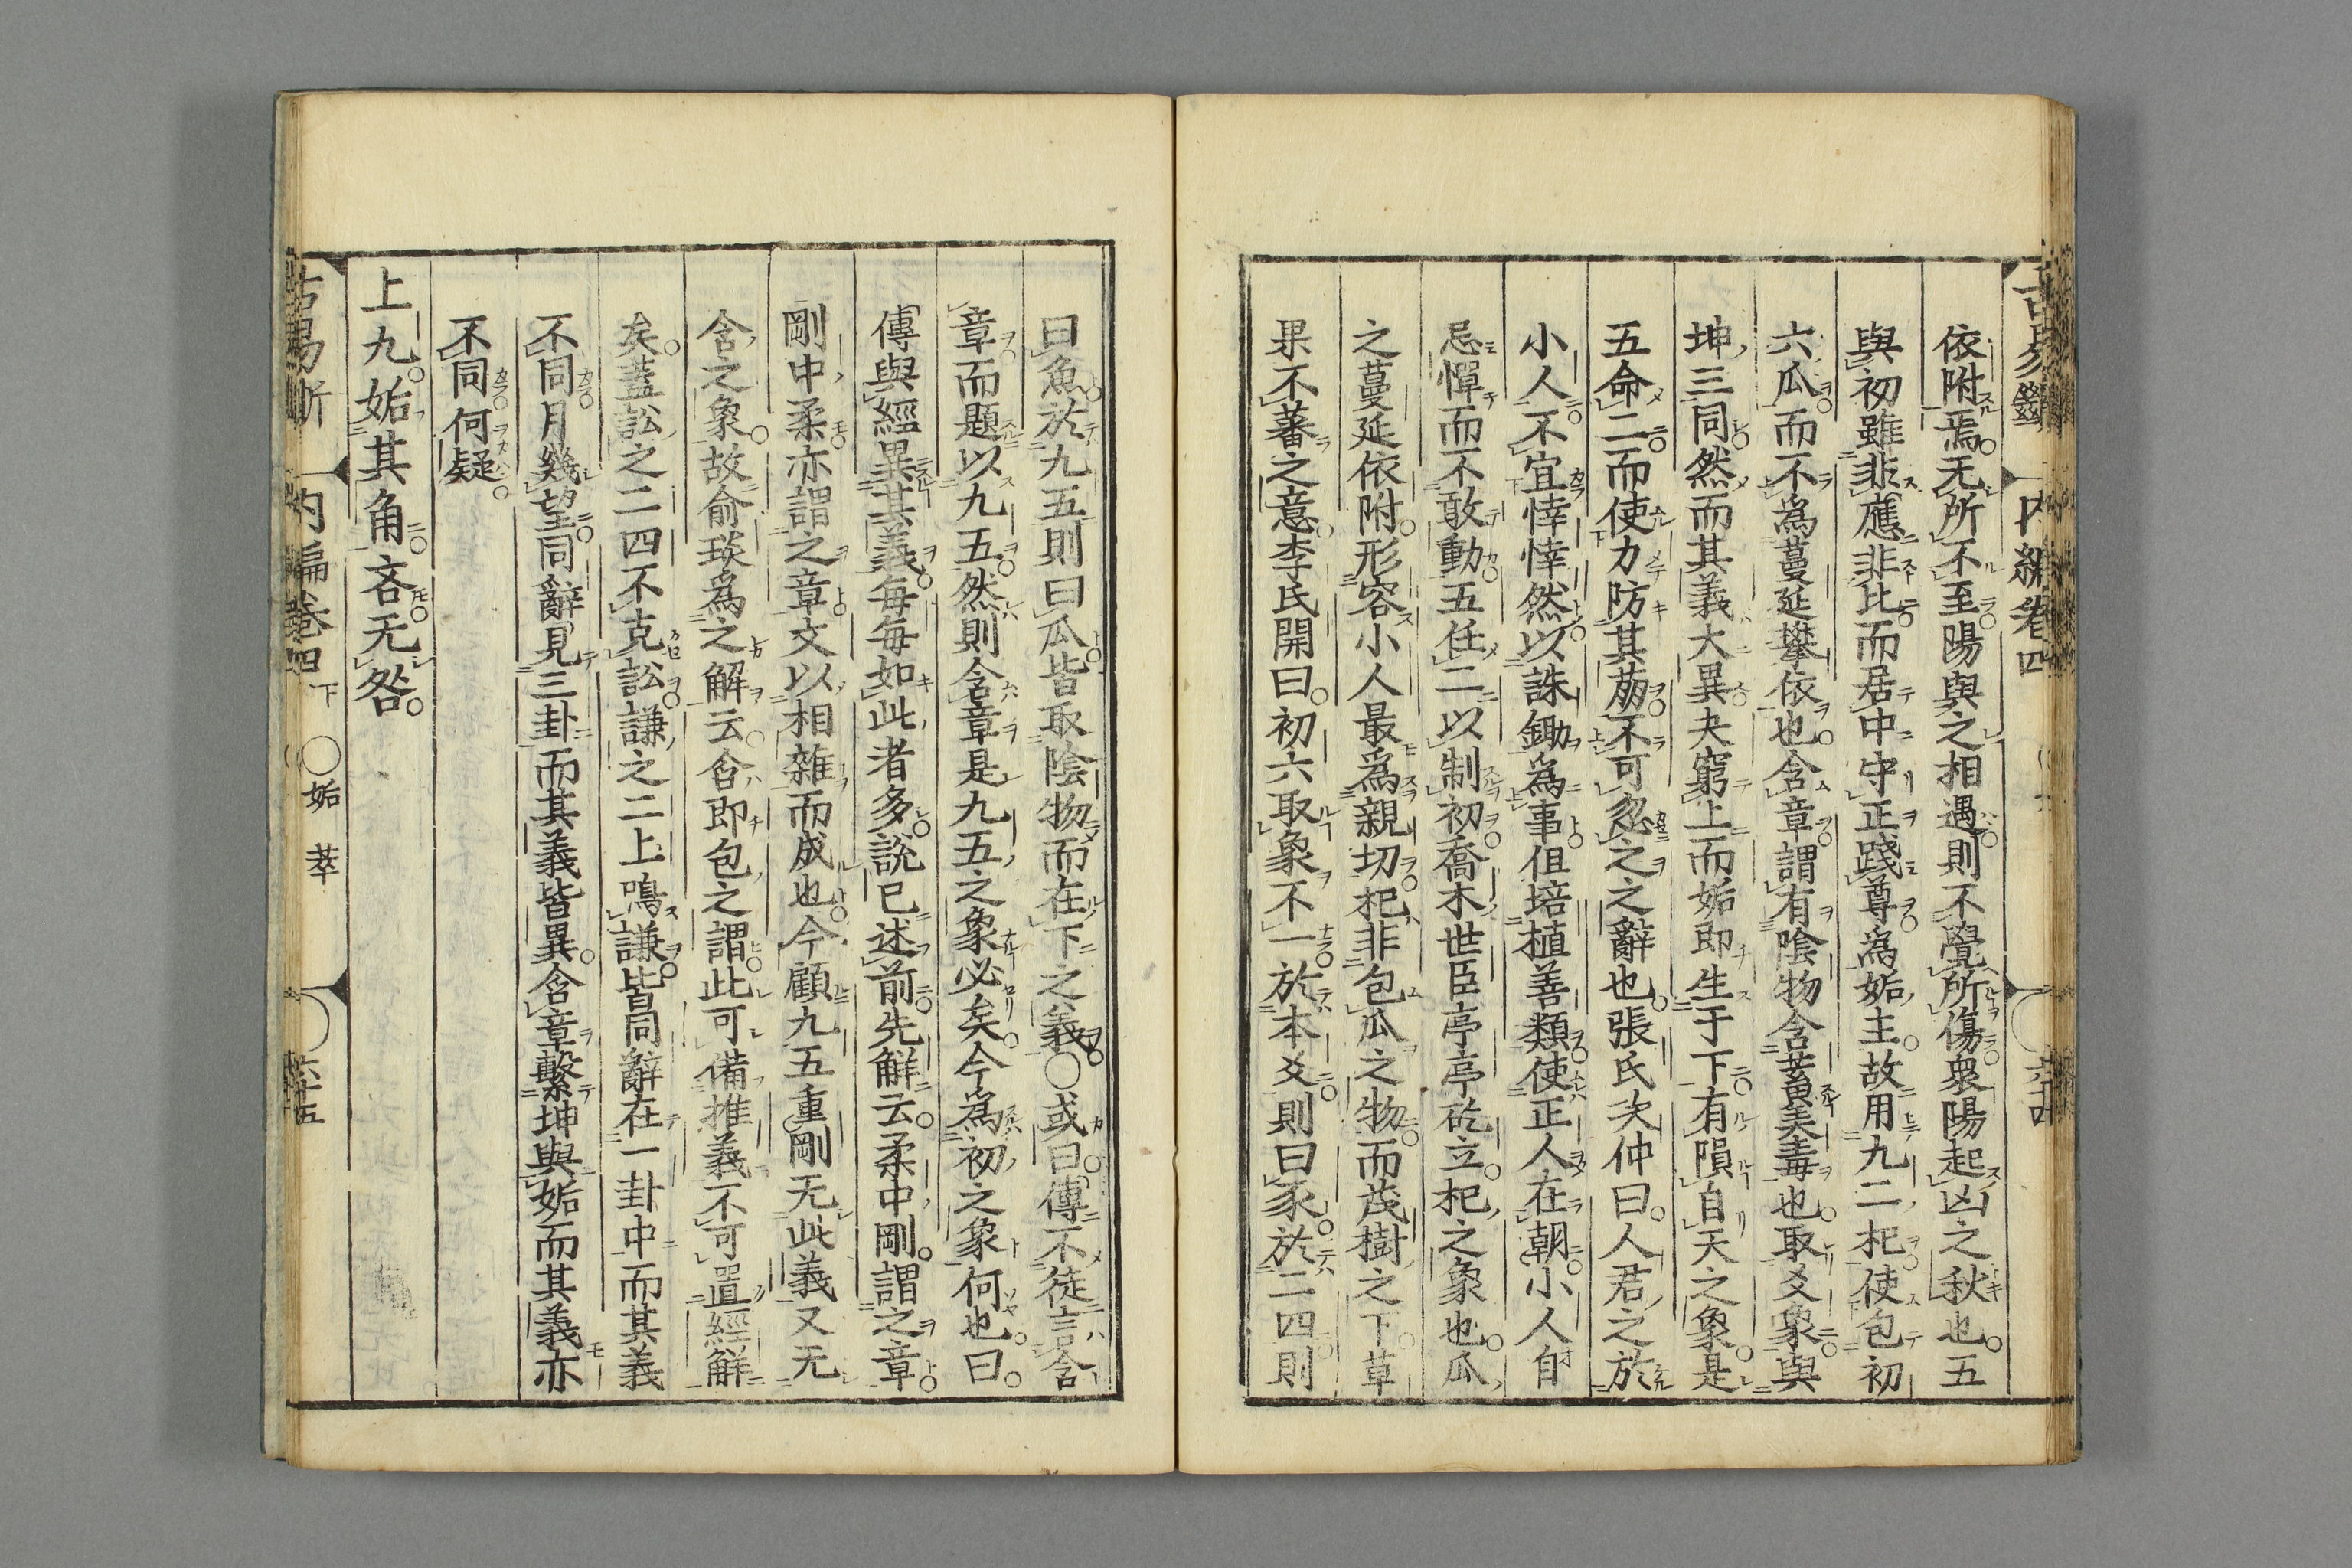 依附焉无所不至陽與之相遇則不覺所傷衆陽起凶之秋也五
與初雖非應非比而居中守正踐尊爲姤主故用九二杞使包初
六瓜而不爲蔓延攀依也含章謂有陰物含蓄美毒也取爻象與
坤三同然而其義大異夬窮上而姤即生于下有隕自天之象是
五命二而使力防其萠不可忽之之辭也張氏次仲曰人君之於
小人不宜悻悻然以誅鋤爲事但培植善類使正人在朝小人自
忌憚而不敢動五任二以制初喬木世臣亭亭矻立杞之象也瓜
之蔓延依附形容小人最爲親切杞非包瓜之物而茂樹之下草
果不蕃之意李氏開曰初六取象不一於本爻則曰豕於二四則
曰魚於九五則曰瓜皆取陰物而在下之義〇或曰傳不徒言含
章而題以九五然則含章是九五之象必矣今爲初之象何也曰
傳與經異其義每每如此者多說已述前先解云柔中剛謂之章
剛中柔亦謂之章文以相雜而成也今顧九五重剛无此義又无
含之象故俞琰爲之解云含即包之謂此可備推義不可置經解
矣蓋訟之二四不克訟謙之二上鳴謙皆同辭在一卦中而其義
不同月幾望同辭見三卦而其義皆異含章繫坤與姤而其義亦
不同何疑
上九姤其角吝无咎
内編卷四下 〇姤 萃 六十五